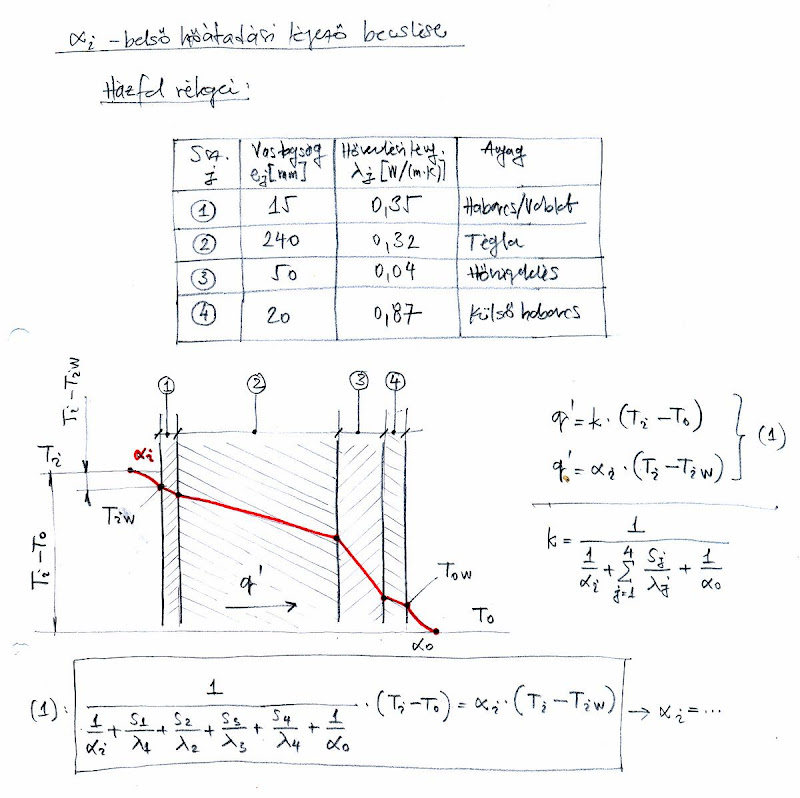 αi – belső hőátadási tényező becslése
Házfal rétegei:
Sz. j | Vastagság ej [mm] | Hővezetési tény. λj [W/(m·K)] | Anyag
① | 15 | 0,35 | Habarcs/Vakolat
② | 240 | 0,32 | Tégla
③ | 50 | 0,04 | Hőszigetelés
④ | 20 | 0,87 | Külső habarcs
① ② ③ ④
Ti – TiW
Ti αi
TiW
Ti – To
q'
ToW
To
αo
q' = k · (Ti – To)
q' = αi · (Ti – TiW) } (1)
k = 1 / (1/αi + Σ(j=1..4) Sj/λj + 1/αo)
(1): 1 / (1/αi + S1/λ1 + S2/λ2 + S3/λ3 + S4/λ4 + 1/αo) · (Ti – To) = αi · (Ti – TiW) → αi = ...